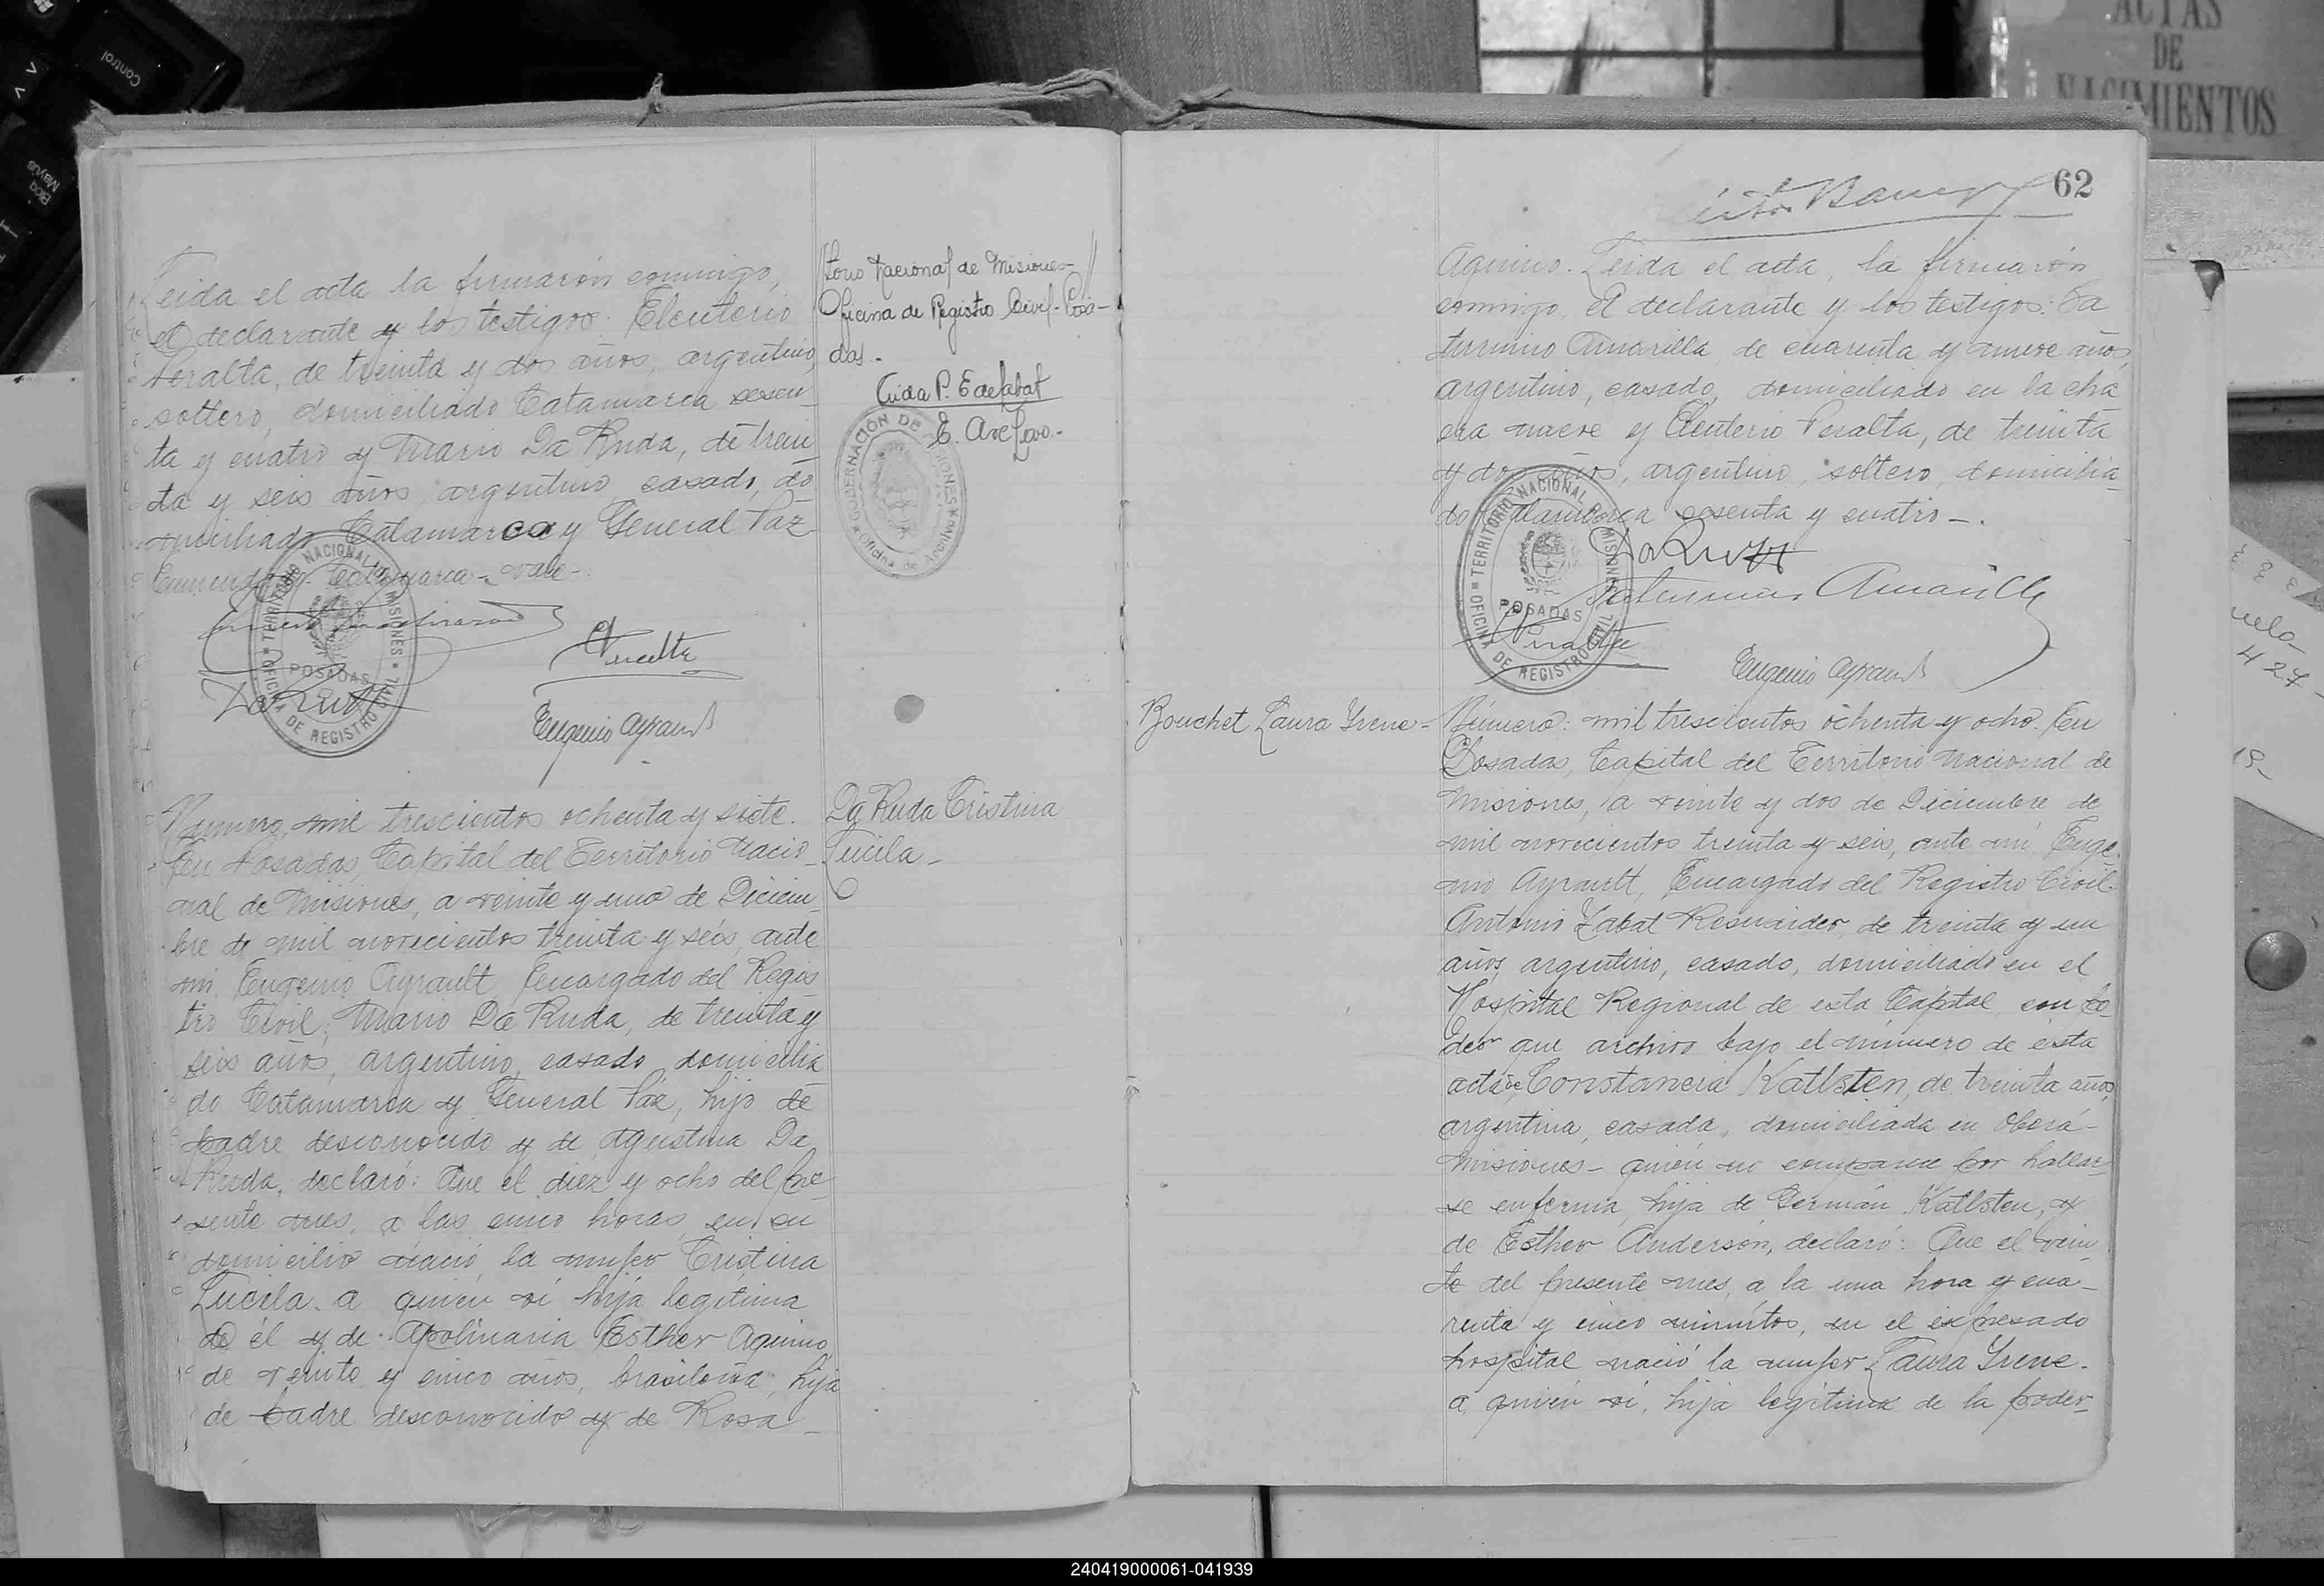 Control
Bloq
Mayús
ACTAS
DE
NACIMIENTOS
Leida el acta la firmarón conmigo,
el declarante y los testigos: Eleuterio
Peralta, de treinta y dos años, argentino,
soltero, domiciliado Catamarca sesen
ta y cuatro y Mario Da Ruda, de trein
ta y seis años, argentino, casado, do
miciliado Catamarca y General Paz
Enmendado - Catamarca - vale -
Eugenio Ayrault
TERRITORIO NACIONAL DE MISIONES
POSADAS
OFICINA DE REGISTRO CIVIL
torio Nacional de Misiones
Oficina de Registro Civil - Posa-
das -
GOBERNACIÓN DE MISIONES
Oficina de
Numero, mil trescientos ochenta y siete.
En Posadas, Capital del Territorio Nacio
nal de Misiones, a veinte y uno de Diciem
bre de mil novecientos treinta y seis, ante
mi, Eugenio Ayrault, Encargado del Regis
tro Civil, Mario Da Ruda, de treinta y
seis años, argentino, casado, domicilia
do Catamarca y General Páz, hijo de
padre desconocido y de Agustina Da
Ruda, declaró: Que el diez y ocho del pre
sente mes, a las cinco horas, en su
domicilio nació la mujer Cristina
Lucila a quien ví hija legítima
de él y de Apolinaria Esther Aquino,
de veinte y cinco años, brasileña, hija
de padre desconocido y de Rosa
Da Ruda Cristina
Lucila -
62
Aquino. Leida el acta, la firmarón
conmigo, el declarante y los testigos: Sa
turnino Amarilla de cuarenta y nueve años,
argentino, casado, domiciliado en la chá
cra nueve y Eleuterio Peralta, de treinta
y dos años, argentino, soltero, domicilia
do Catamarca sesenta y cuatro -.
Saturnino Amarilla
Eugenio Ayrault
TERRITORIO NACIONAL DE MISIONES
POSADAS
OFICINA DE REGISTRO CIVIL
Bouchet Laura Yrene -
Número: mil trescientos ochenta y ocho. En
Posadas, Capital del Territorio Nacional de
Misiones, a veinte y dos de Diciembre de
mil novecientos treinta y seis, ante mi, Euge
nio Ayrault, Encargado del Registro Civil.
Antonio Labat de treinta y un
años, argentino, casado, domiciliado en el
Hospital Regional de esta Capital, con po
der que archivo bajo el número de ésta
acta, de Constancia Kallsten, de treinta años,
argentina, casada, domiciliada en Oberá -
Misiones - quién no comparece por hallar
se enferma, hija de Germán Kallsten, y
de Esther Anderson, declaró: Que el vein
te del presente mes, a la una hora y cua-
renta y cinco minutos, en el expresado
hospital nació la mujer Laura Yrene -
a quien ví, hija legítima de la poder-
427
19-
240419000061-041939